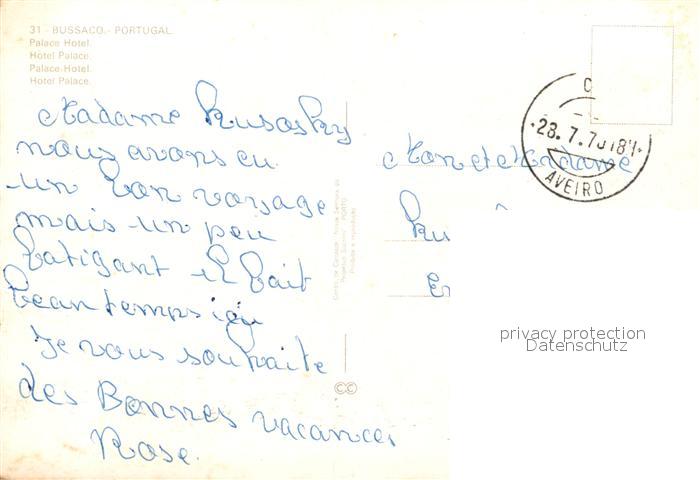 31 - BUSSACO - PORTUGAL
Palace Hotel.
Hotel Palace.
Palace-Hotel.
Hotel Palace.
Madame Kusosky
nous avons eu
un bon voyage
mais un peu
fatigant il fait
beau temps ici
Je vous souhaite
des Bonnes vacances
Rose.
Mon et Madame
Ku
E
28.7.7 18H
AVEIRO
PORTO
privacy protection
Datenschutz